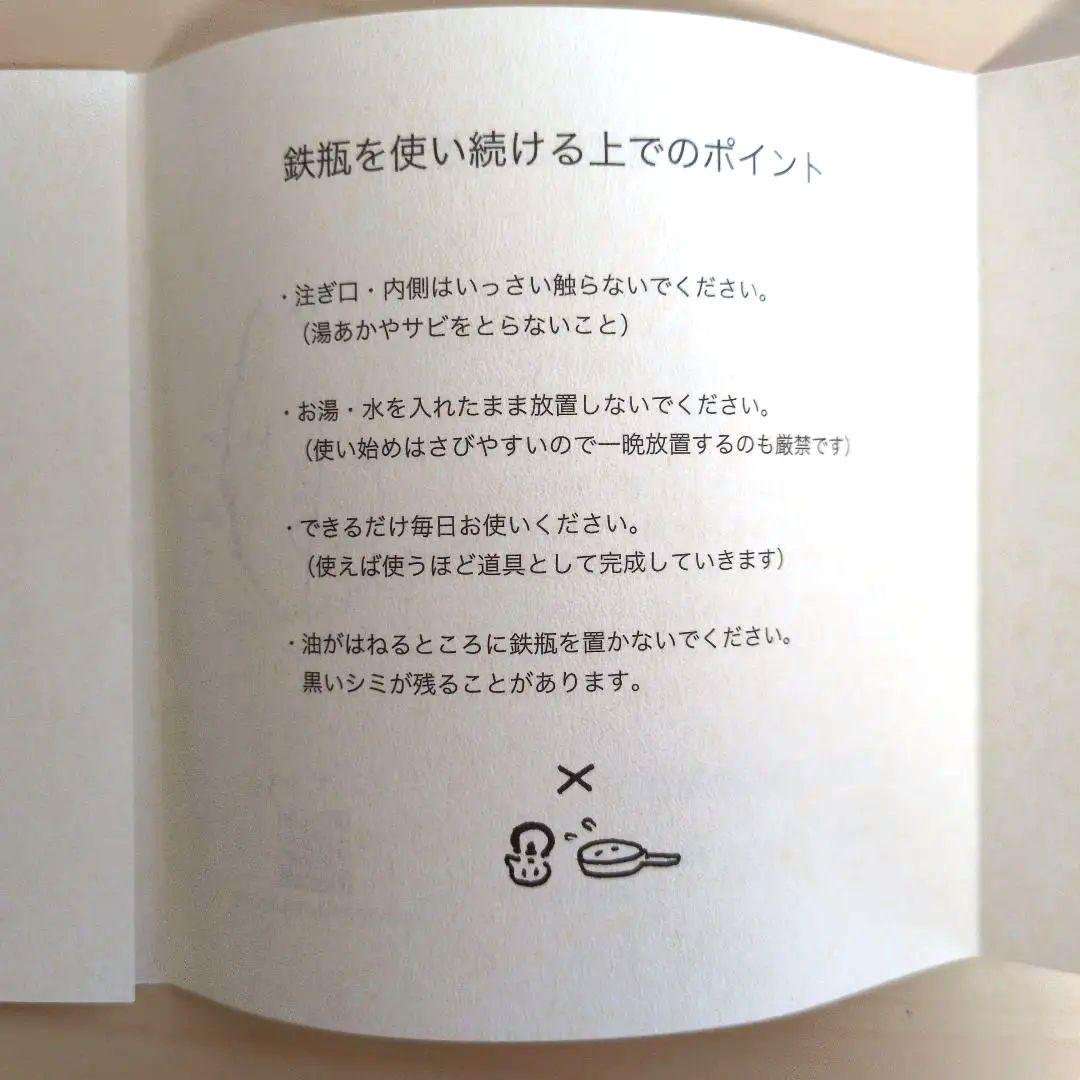 鉄瓶を使い続ける上でのポイント
・注ぎ口・内側はいっさい触らないでください。
（湯あかやサビをとらないこと）
・お湯・水を入れたまま放置しないでください。
（使い始めはさびやすいので一晩放置するのも厳禁です）
・できるだけ毎日お使いください。
（使えば使うほど道具として完成していきます）
・油がはねるところに鉄瓶を置かないでください。
黒いシミが残ることがあります。